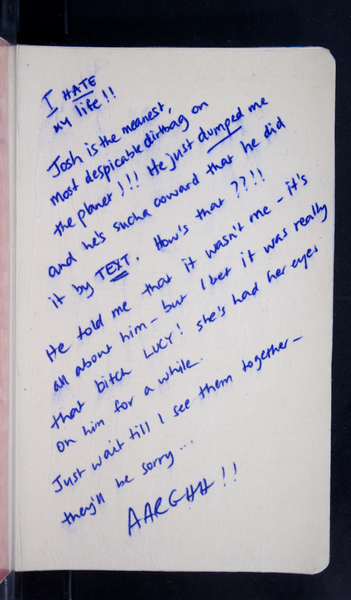 I HATE
my life!!
Josh is the meanest,
most despicable dirtbag on
the planet!!! He just dumped me
and he's sucha coward that he did
it by TEXT. How's that??!!
He told me that it wasn't me - it's
all about him - but I bet it was really
that bitch LUCY! She's had her eyes
on him for a while.
Just wait till I see them together -
they'll be sorry...
AARGHH!!